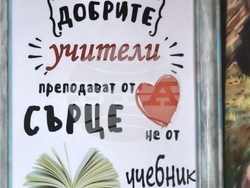 ДОБРИТЕ
учители
преподават от
СЪРЦЕ
не от
учебник